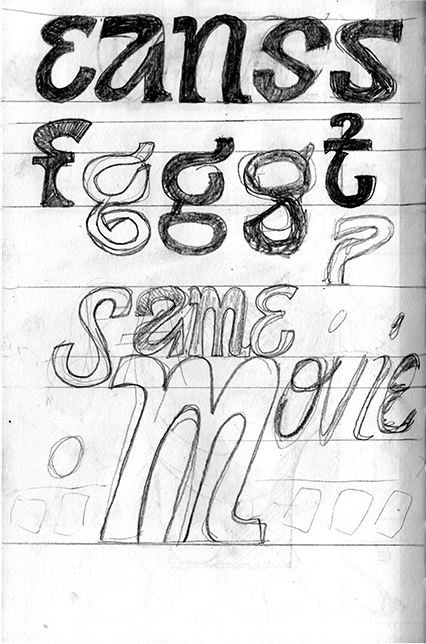 eanss
fgggt
same
movie